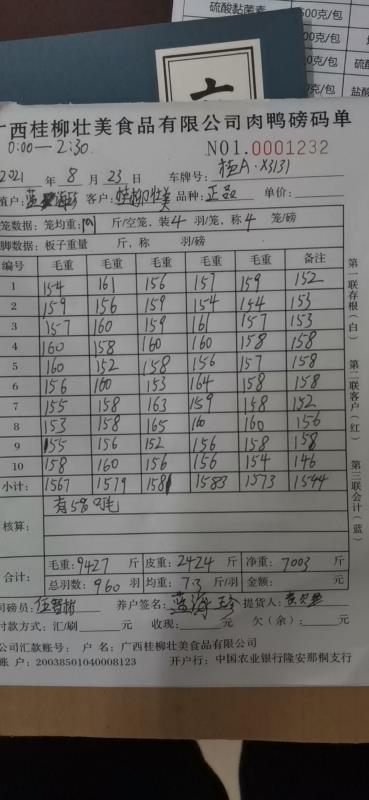 硫酸黏菌素
500克/包
00克/包
硫酸
盐酸
广西桂柳壮美食品有限公司肉鸭磅码单
0:00—2:30
NO1.0001232
2021年8月23日 车牌号:桂A·X3131
殖户: 客户:桂柳壮美 品种:正品 单价:
笼数据:笼均重: 斤/空笼,装4羽/笼,称4笼/磅
脚数据:板子重量 斤,称 羽/磅
编号 毛重 毛重 毛重 毛重 毛重 备注
1 154 161 156 157 159 152
2 159 156 159 154 154 153
3 157 160 159 161 157 153
4 160 158 160 160 158 158
5 160 152 158 156 157 158
6 156 160 153 164 158 158
7 155 158 163 159 158 152
8 153 158 165 160 160 156
9 155 156 152 156 158 158
10 158 160 156 156 154 146
小计: 1567 1579 1581 1583 1573 1544
核算: 有58只毛
合计: 毛重:9427斤 皮重:2424斤 净重:7003斤
总羽数:960羽 均重:7.3斤/羽 金额: 元
司磅员: 养户签名: 提货人:
付款方式:汇/刷 元 收现: 元 欠(余): 元
公司汇款账号: 户 名:广西桂柳壮美食品有限公司
账 户:20038501040008123 开户行:中国农业银行隆安那桐支行
第一联存根(白)
第二联客户(红)
第三联会计(蓝)